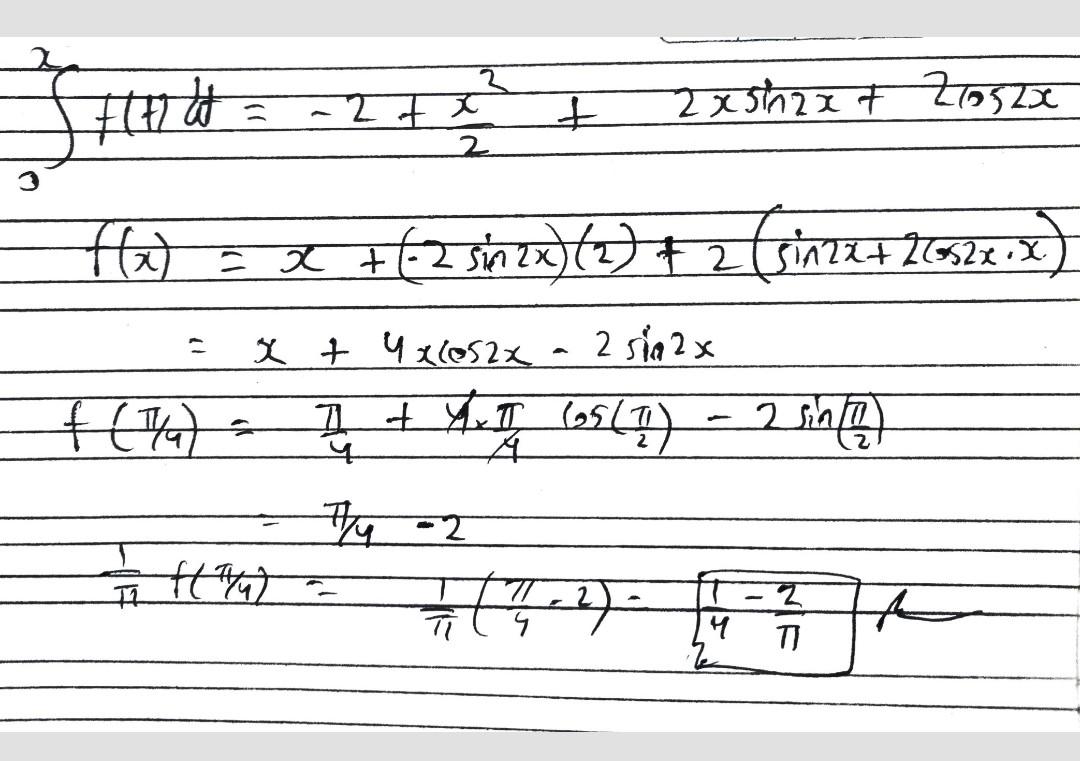 ∫₀ˣ f(t) dt = -2 + x²/2 + 2x sin2x + 2cos2x
f(x) = x + (-2 sin2x)(2) + 2(sin2x + 2cos2x · x)
= x + 4xcos2x - 2 sin2x
f(π/4) = π/4 + 4×π/4 cos(π/2) - 2 sin(π/2)
= π/4 - 2
1/π f(π/4) = 1/π (π/4 - 2) = 1/4 - 2/π